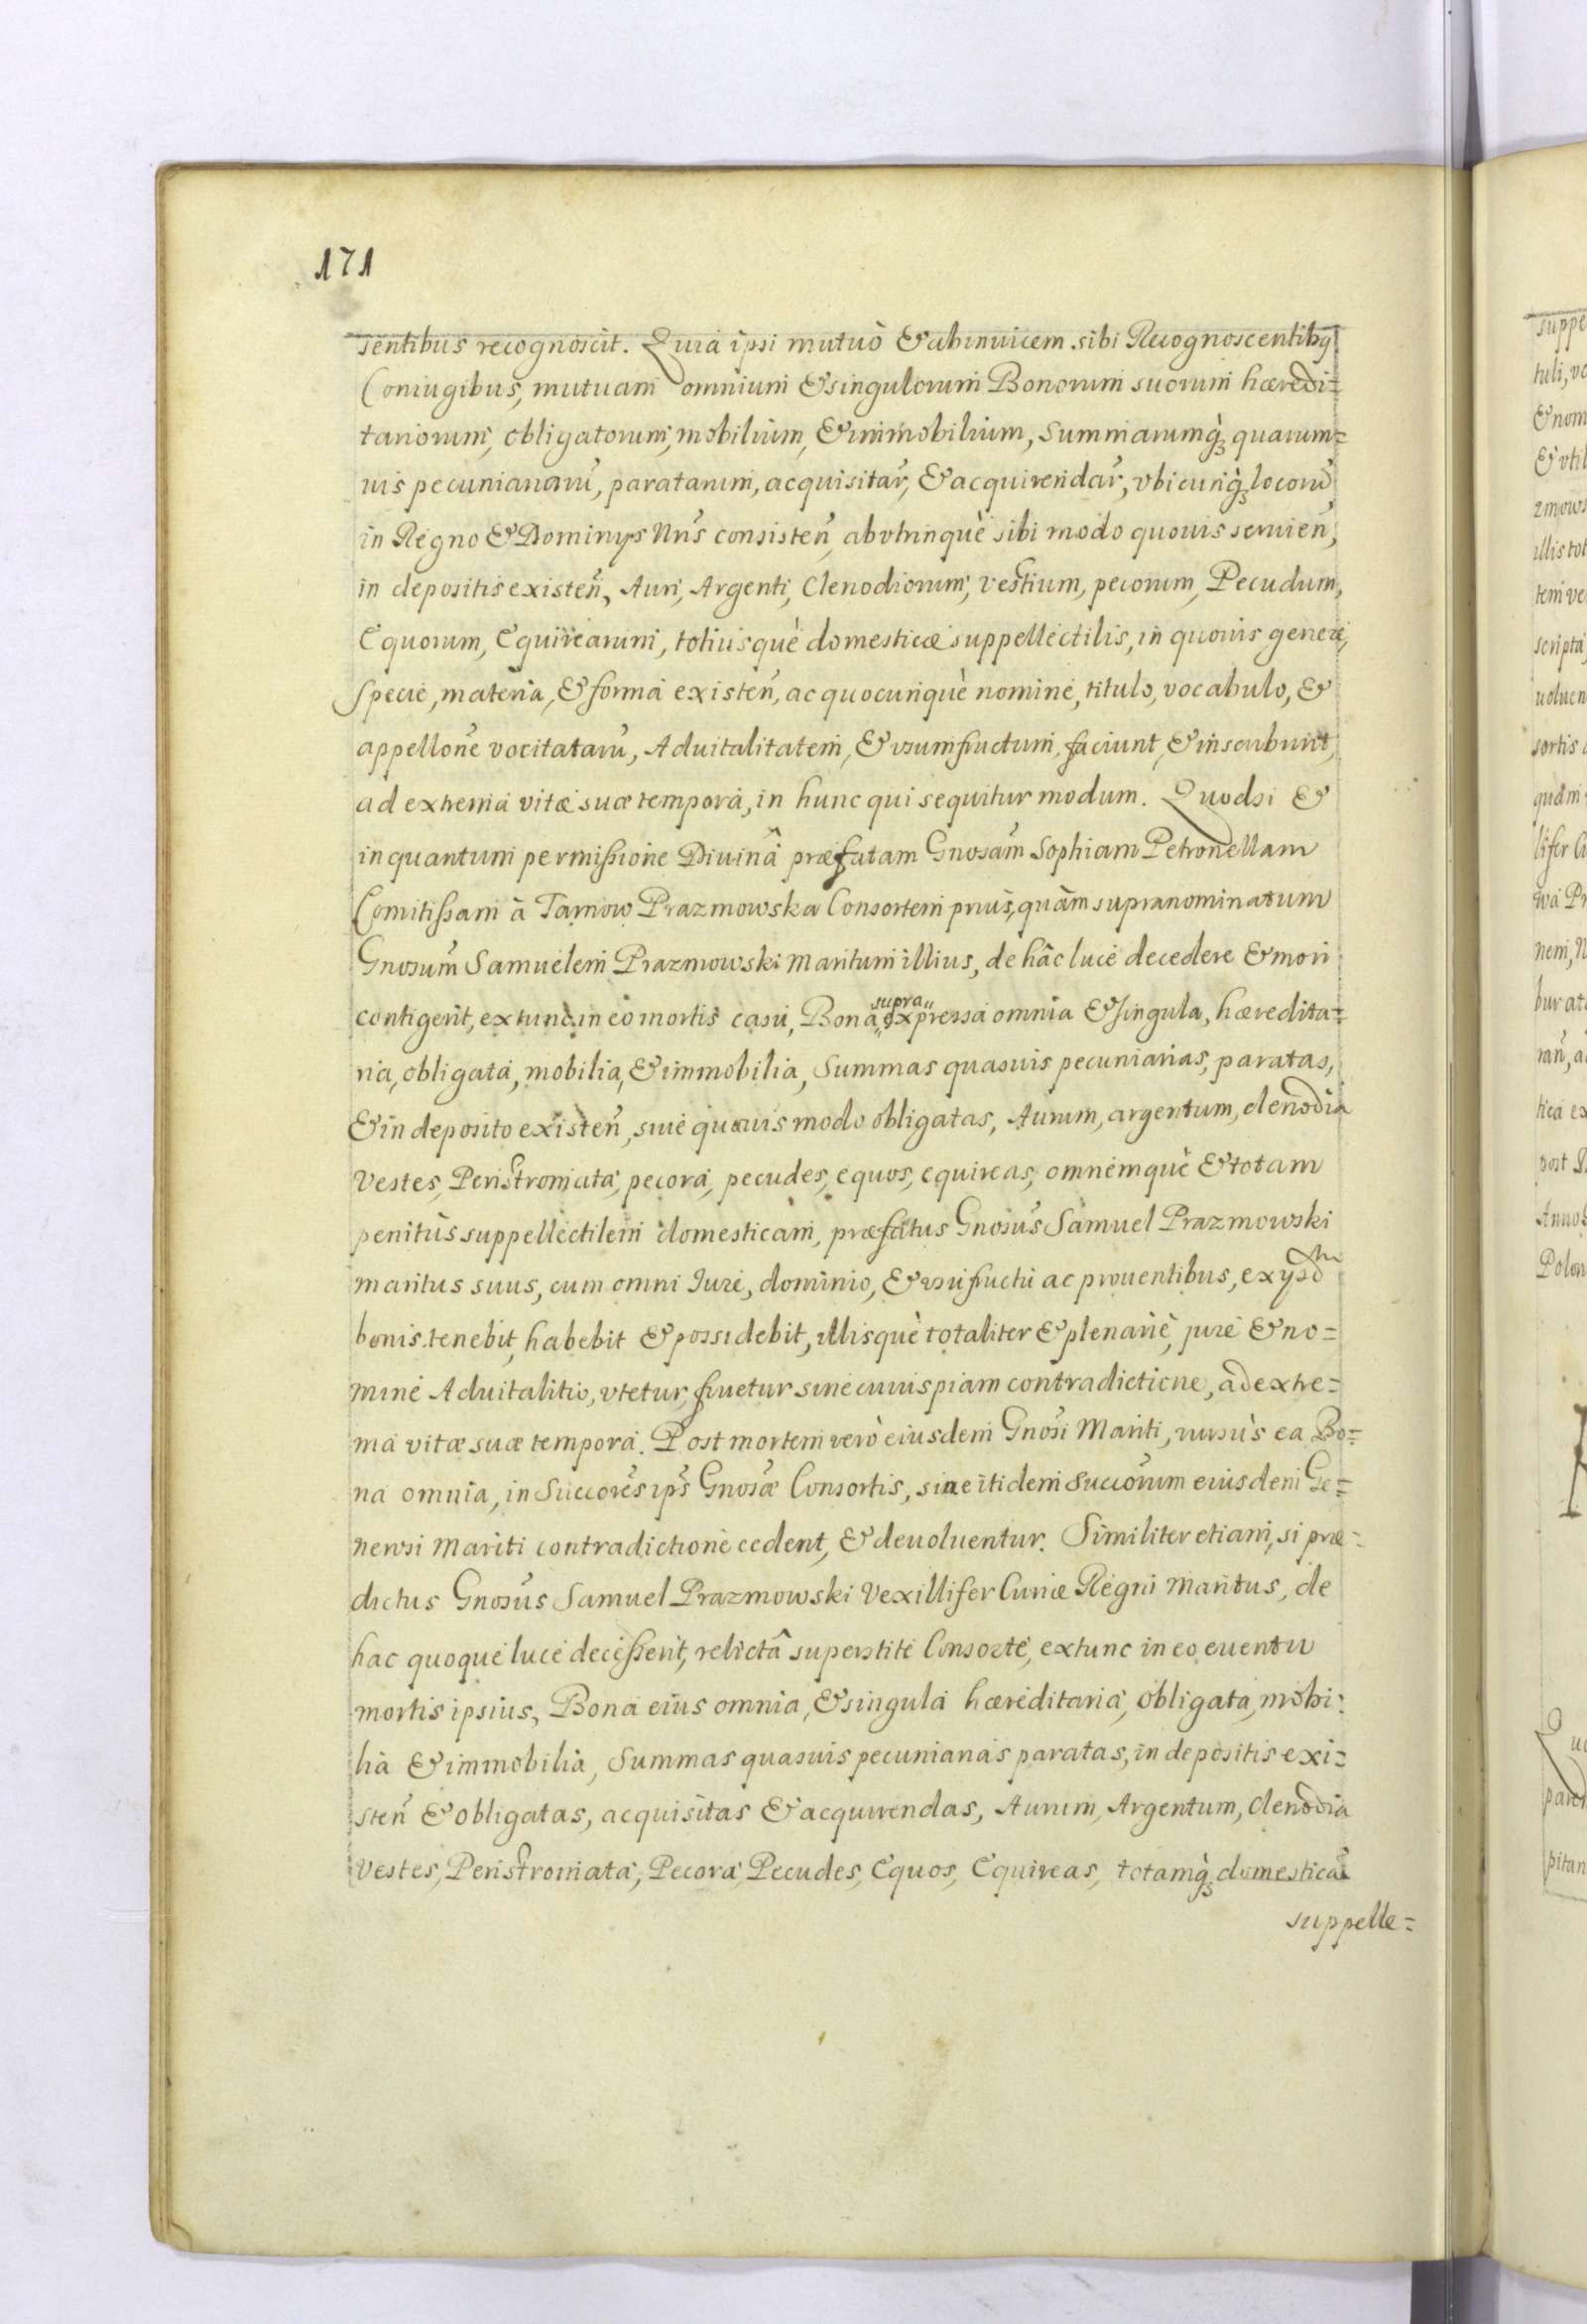 171
sentibus recognoscit. Quia ipsi mutuò & abinuicem sibi Recognoscentibq
Coniugibus, mutuam omnium & singulorum Bonorum suorum hæredi=
tariorum, obligatorum, mobilium, & immobilium, Summarumq̀ȝ quarum=
uis pecuniariarũ, paratarum, acquisitar̃, & acquirendar̃, vbicunq̀ȝ locorũ
in Regno & Dominijs Nr̃is consisten̄, abvtrinquè sibi modo quouis seruien̄,
in depositis existen̄, Auri, Argenti, Clenodiorum, vestium, pecorum, Pecudum,
Equorum, Equirearum, totiusquè domesticæ suppellectilis, in quouis genere,
Specie, materia, & forma existen̄, ac quocunquè nomine, titulo, vocabulo, &
appellon̄e vocitatarũ, Aduitalitatem, & vsumfructum, faciunt, & inscribunt,
ad extrema vitæ suæ tempora, in hunc qui sequitur modum. Quodsi &
inquantum permissione Diuinâ præfatam Gnosam̃ Sophiam Petronellam
Comitissam à Tarnow Prazmowska Consortem priùs, quàm supranominatum
Gnosum̃ Samuelem Prazmowski Maritum illius, de hâc luce decedere & mori
contigerit, extunc in eo mortis casu, Bona supra expressa omnia & singula, hæredita=
ria, obligata, mobilia, & immobilia, Summas quasuis pecuniarias, paratas,
& in deposito existen̄, siue quauis modo obligatas, Aurum, argentum, clenodia
Vestes, Peristromata, pecora, pecudes, equos, equireas, omnemquè & totam
penitùs suppellectilem domesticam, præfatus Gnosus̃ Samuel Prazmowski
maritus suus, cum omni Iure, dominio, & vsufructu ac prouentibus, ex ijsdm
bonis tenebit, habebit & possidebit, illisquè totaliter & plenariè, jure & no=
mine Aduitalitio, vtetur, fruetur sine cuiuspiam contradictione, ad extre=
ma vitæ suæ tempora. Post mortem verò eiusdem Gnosi̅ Mariti, rursùs ea Bo=
na omnia, in Succores̃ ips̃ Gnosæ̃ Consortis, sine itidem Succorum̃ eiusdem Ge=
nerosi Mariti contradictione cedent, & deuoluentur. Similiter etiam, si præ=
dictus Gnosus̃ Samuel Prazmowski Vexillifer Curiæ Regni Maritus, de
hac quoque luce decesserit, relictâ superstite Consorte, extunc in eo euentu
mortis ipsius, Bona eius omnia, & singula hæreditaria, obligata, mobi=
lia & immobilia, Summas quasuis pecuniarias paratas, in depositis exi=
sten̄ & obligatas, acquisitas & acquirendas, Aurum, Argentum, Clenodia
Vestes, Peristromata, Pecora, Pecudes, Equos, Equireas, totamq̀ȝ domesticã
suppelle=